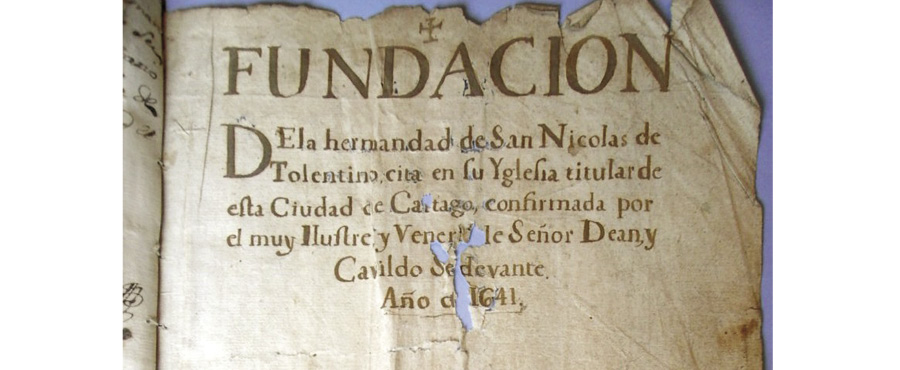 FUNDACION
DEla hermandad de San Nicolas de
Tolentino, cita en ſu Ygleſia titular de
eſta Ciudad de Cartago, confirmada por
el muy Iluſtre, y Venerable Señor Dean, y
Cavildo Sedevante.
Año de 1641.